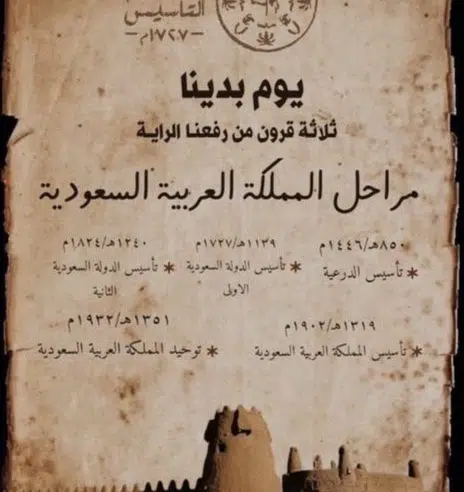 التأسيس
-١٧٢٧م-
يوم بدينا
ثلاثة قرون من رفعنا الراية
مراحل المملكة العربية السعودية
٨٥٠هـ/١٤٤٦م
* تأسيس الدرعية
١١٣٩هـ/١٧٢٧م
* تأسيس الدولة السعودية
الاولى
١٢٤٠هـ/١٨٢٤م
* تأسيس الدولة السعودية
الثانية
١٣١٩هـ/١٩٠٢م
* تأسيس المملكة العربية السعودية
١٣٥١هـ/١٩٣٢م
* توحيد المملكة العربية السعودية